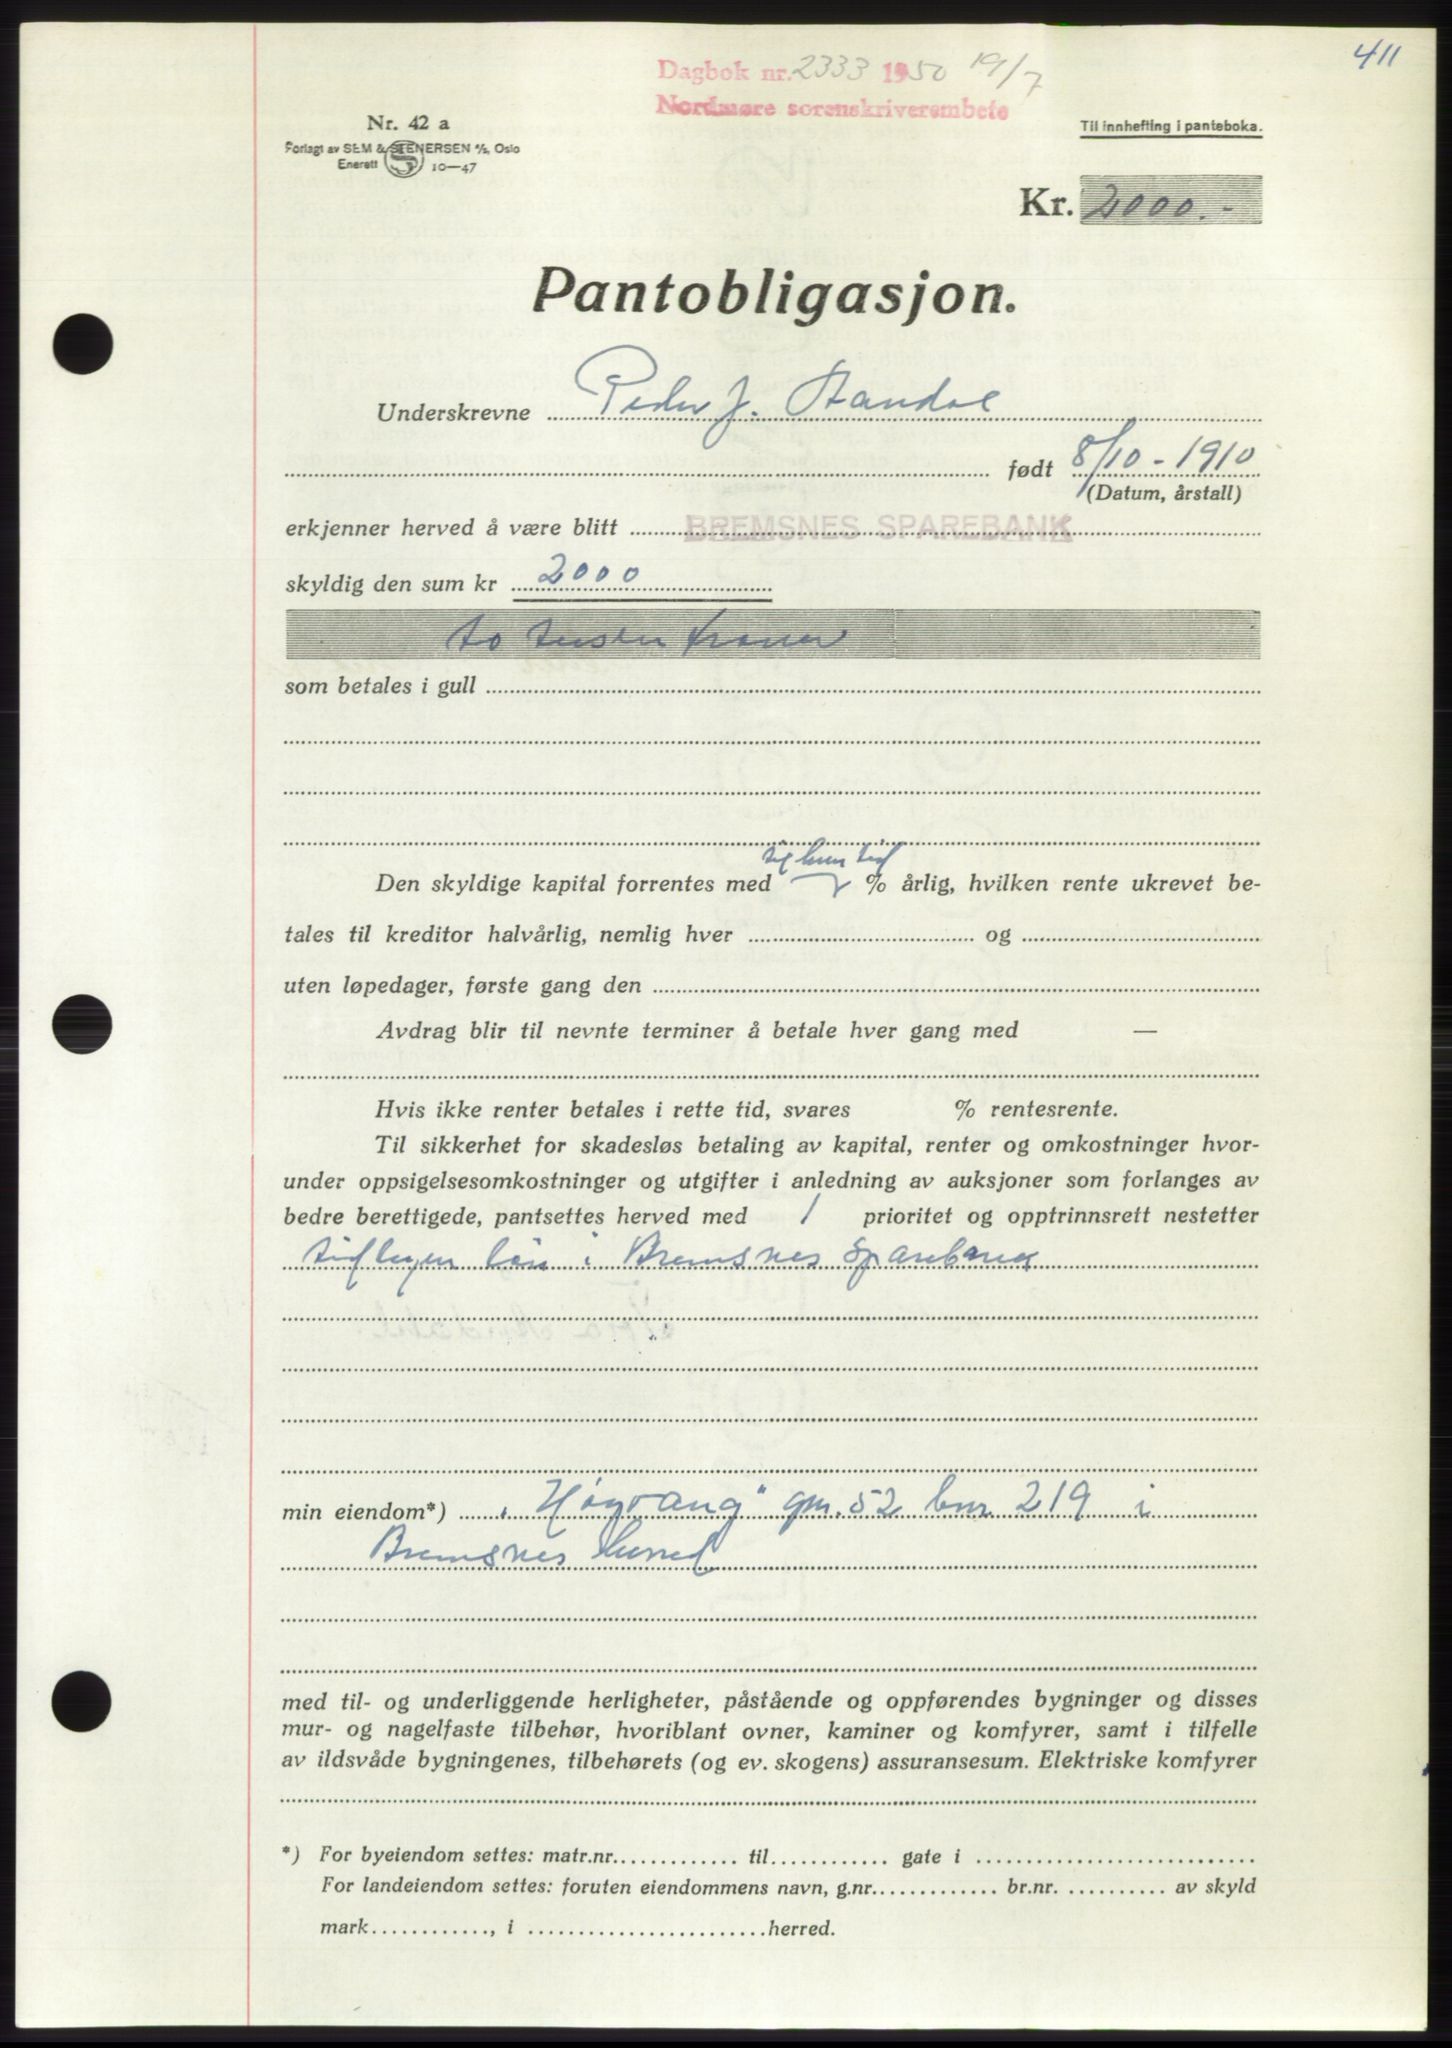 411
Dagbok nr. 2333 1950 19/7
Nordmøre sorenskriverembete
Nr. 42 a
Forlagt av SEM & STENERSEN A/S, Oslo
Enerett S 10—47
Til innhefting i panteboka.
Kr. 2000.-
Pantobligasjon.
Underskrevne Peder J. Standal
født 8/10 - 1910
(Datum, årstall)
erkjenner herved å være blitt BREMSNES SPAREBANK
skyldig den sum kr 2000
to tusen kroner
som betales i gull
til hver tid
Den skyldige kapital forrentes med % årlig, hvilken rente ukrevet be-
tales til kreditor halvårlig, nemlig hver og
uten løpedager, første gang den
Avdrag blir til nevnte terminer å betale hver gang med —
Hvis ikke renter betales i rette tid, svares % rentesrente.
Til sikkerhet for skadesløs betaling av kapital, renter og omkostninger hvor-
under oppsigelsesomkostninger og utgifter i anledning av auksjoner som forlanges av
bedre berettigede, pantsettes herved med 1 prioritet og opptrinnsrett nestetter
lån i Bremsnes Sparebank
min eiendom*) "Høgvang" gnr. 52 bnr 219 i
Bremsnes herred
med til- og underliggende herligheter, påstående og oppførendes bygninger og disses
mur- og nagelfaste tilbehør, hvoriblant ovner, kaminer og komfyrer, samt i tilfelle
av ildsvåde bygningenes, tilbehørets (og ev. skogens) assuransesum. Elektriske komfyrer
*) For byeiendom settes: matr.nr. til gate i
For landeiendom settes: foruten eiendommens navn, g.nr. br.nr. av skyld
mark , i herred.